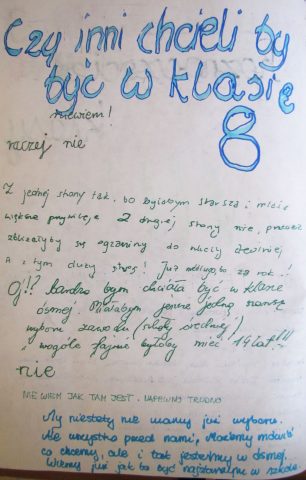 Czy inni chcieli by
być w klasie
8
niewiem!
raczej nie
Z jednej strony tak, bo byłabym starsza i miała
większe przywileje z drugiej strony nie, ponieważ
zbliżałyby się egzaminy do
A z tym duży stres! Już za rok..!
Oj!? bardzo bym chciała być w klasie
ósmej. Miałabym jeszcze jedną szansę
wyboru zawodu (szkoły średniej)
i wogóle fajnie byłoby mieć 14 lat!!!
nie
NIE WIEM JAK TAM JEST. NAPEWNO TRUDNO
My niestety nie mamy już wyboru.
Ale wszystko przed nami, Możemy mówić
co chcemy, ale i tak jesteśmy w ósmej.
Wiemy już jak to być najstarszym w szkole.